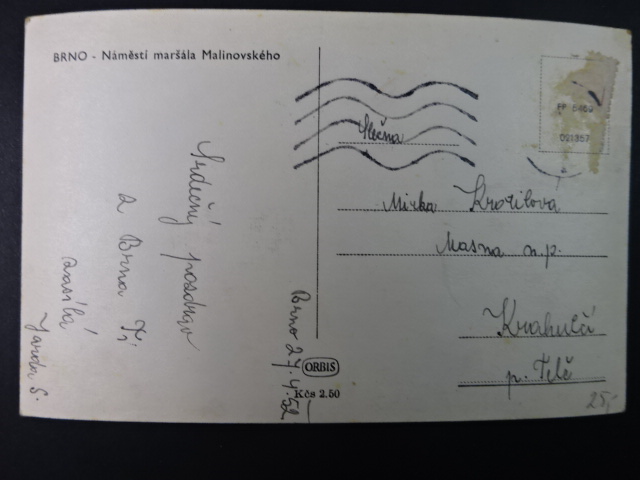 BRNO - Náměstí maršála Malinovského
Srdečný pozdrav
z Brna Ti
zasílá
Jarda S.
Brno 27.4.52
ORBIS
Kčs 2.50
Slečna
Mirka
Masna n.p.
Krahulčí
p. Telč
25,-